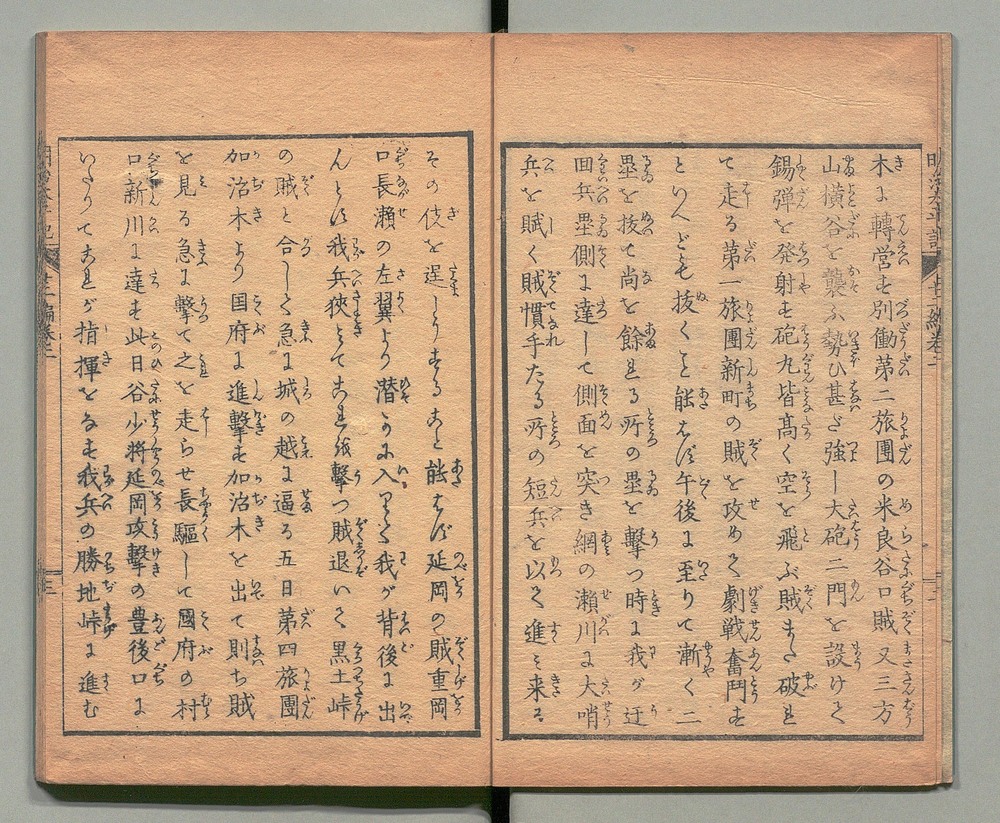 木に轉営す別働第二旅團の米良谷口賊又三方
山横谷を襲ふ勢ひ甚だ強し大砲二門を設けて
錫弾を発射す砲丸皆高く空を飛ぶ賊また破れ
て走る第一旅團新町の賊を攻めて劇戦奮鬥す
といへども抜くこと能はず午後に至りて漸く二
塁を抜て尚を餘れる所の塁を撃つ時に我が迂
回兵塁側に達して側面を突き網の瀬川に大哨
兵を賦く賊慣手たる所の短兵を以て進み来る
その侠を逞しうすること能はず延岡の賊重岡
口長瀬の左翼より潜かに入りて我が背後に出
んとす我兵狭とてこれを撃つ賊退いて黒土峠
の賊と合して急に城の越に逼る五日第四旅團
加治木より国府に進撃す加治木を出て則ち賊
を見る急に撃て之を走らせ長驅して國府の村
口新川に達す此日谷少将延岡攻撃の豊後口に
いたりてこれが指揮をなす我兵の勝地峠に進む